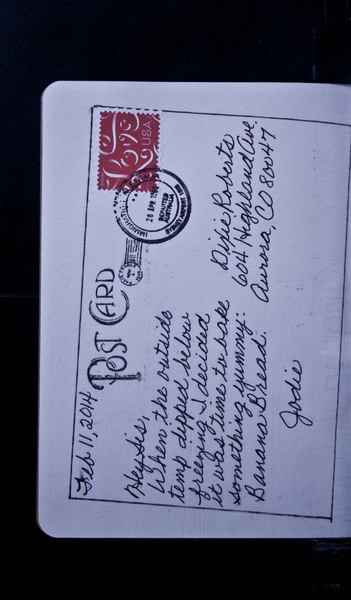 Feb 11, 2014
POST CARD
Love
USA
28 APR
DEPARTED
AUSTRALIA
Hey Sis,
When the outside
temp dipped below
freezing I decided
it was time to bake
something yummy:
Banana Bread.
Jodie
Dixie Roberts
604 Highland Ave.
Aurora, CO 80047